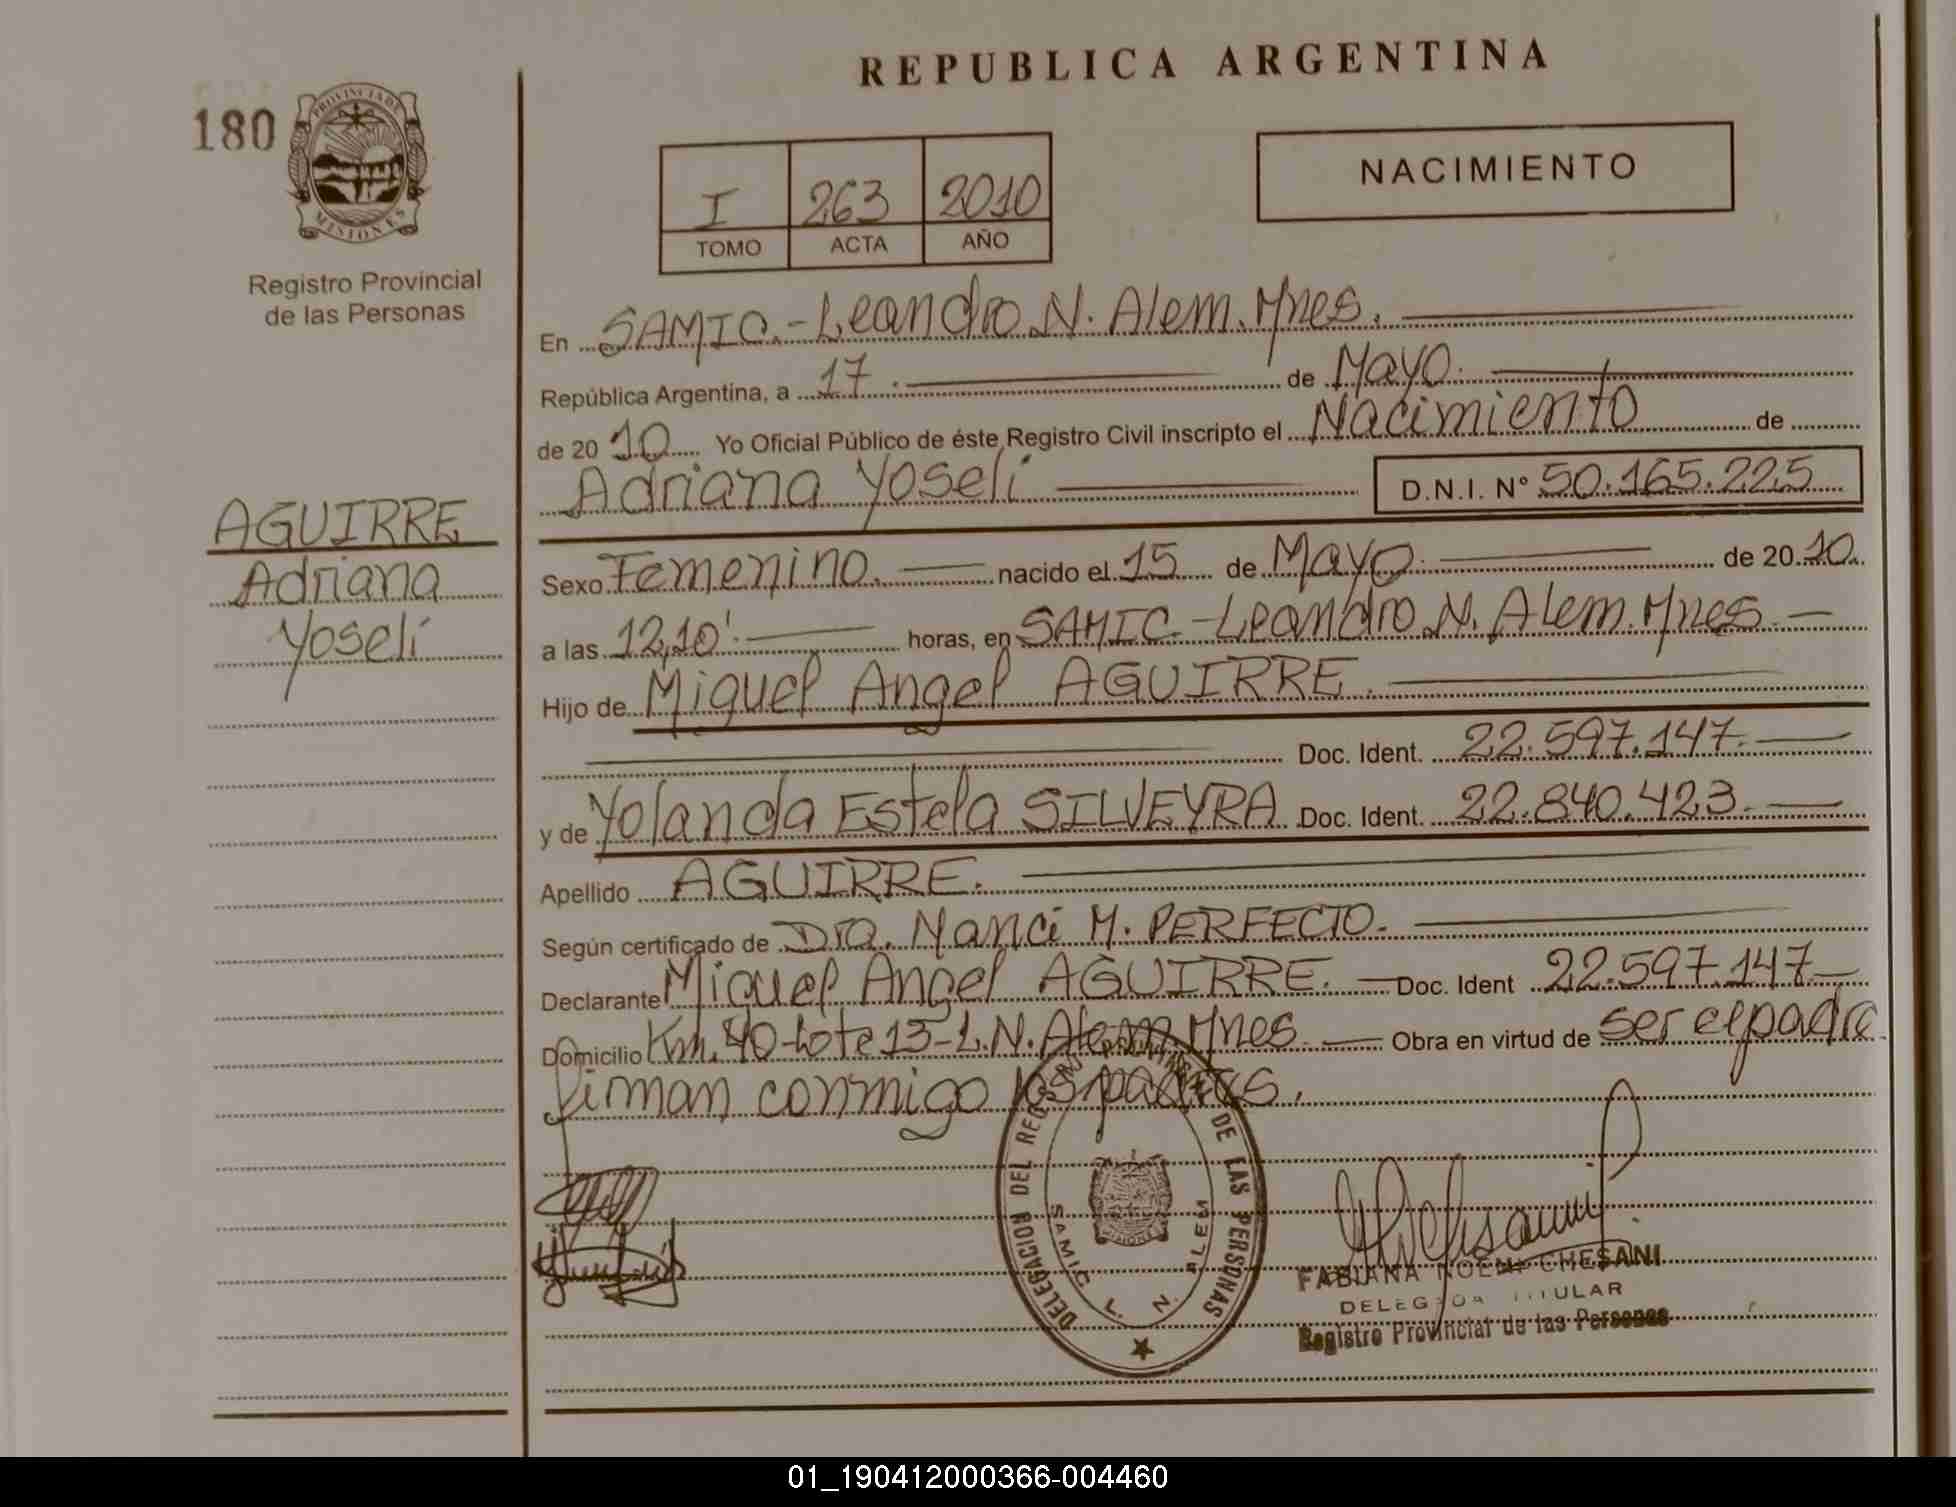 REPUBLICA ARGENTINA
180
PROVINCIA DE
MISIONES
Registro Provincial
de las Personas
NACIMIENTO
I 263 2010
TOMO ACTA AÑO
En SAMIC.-Leandro N. Alem. Mnes.
República Argentina, a 17. de Mayo.
de 20 10 Yo Oficial Público de éste Registro Civil inscripto el Nacimiento de
Adriana Yoseli D.N.I. N° 50.165.225
AGUIRRE
Adriana
Yoseli
Sexo Femenino. nacido el 15 de Mayo. de 20 10.
a las 12,10'. horas, en SAMIC.-Leandro N. Alem. Mnes.-
Hijo de Miguel Angel AGUIRRE.
Doc. Ident. 22.597.147.
y de Yolanda Estela SILVEYRA Doc. Ident. 22.840.423.
Apellido AGUIRRE.
Según certificado de Dra. Nanci M. PERFECTO.
Declarante Miguel Angel AGUIRRE. Doc. Ident 22.597.147
Domicilio Km. 40-Lote 13-L.N. Alem. Mnes. Obra en virtud de ser el padre
Firman conmigo los padres.
DELEGACION DEL REG. PROVINCIAL DE LAS PERSONAS
SAMIC L. N. ALEM
MISIONES
FABIANA NOEMI CHESANI
DELEGADA TITULAR
Registro Provincial de las Personas
01_190412000366-004460